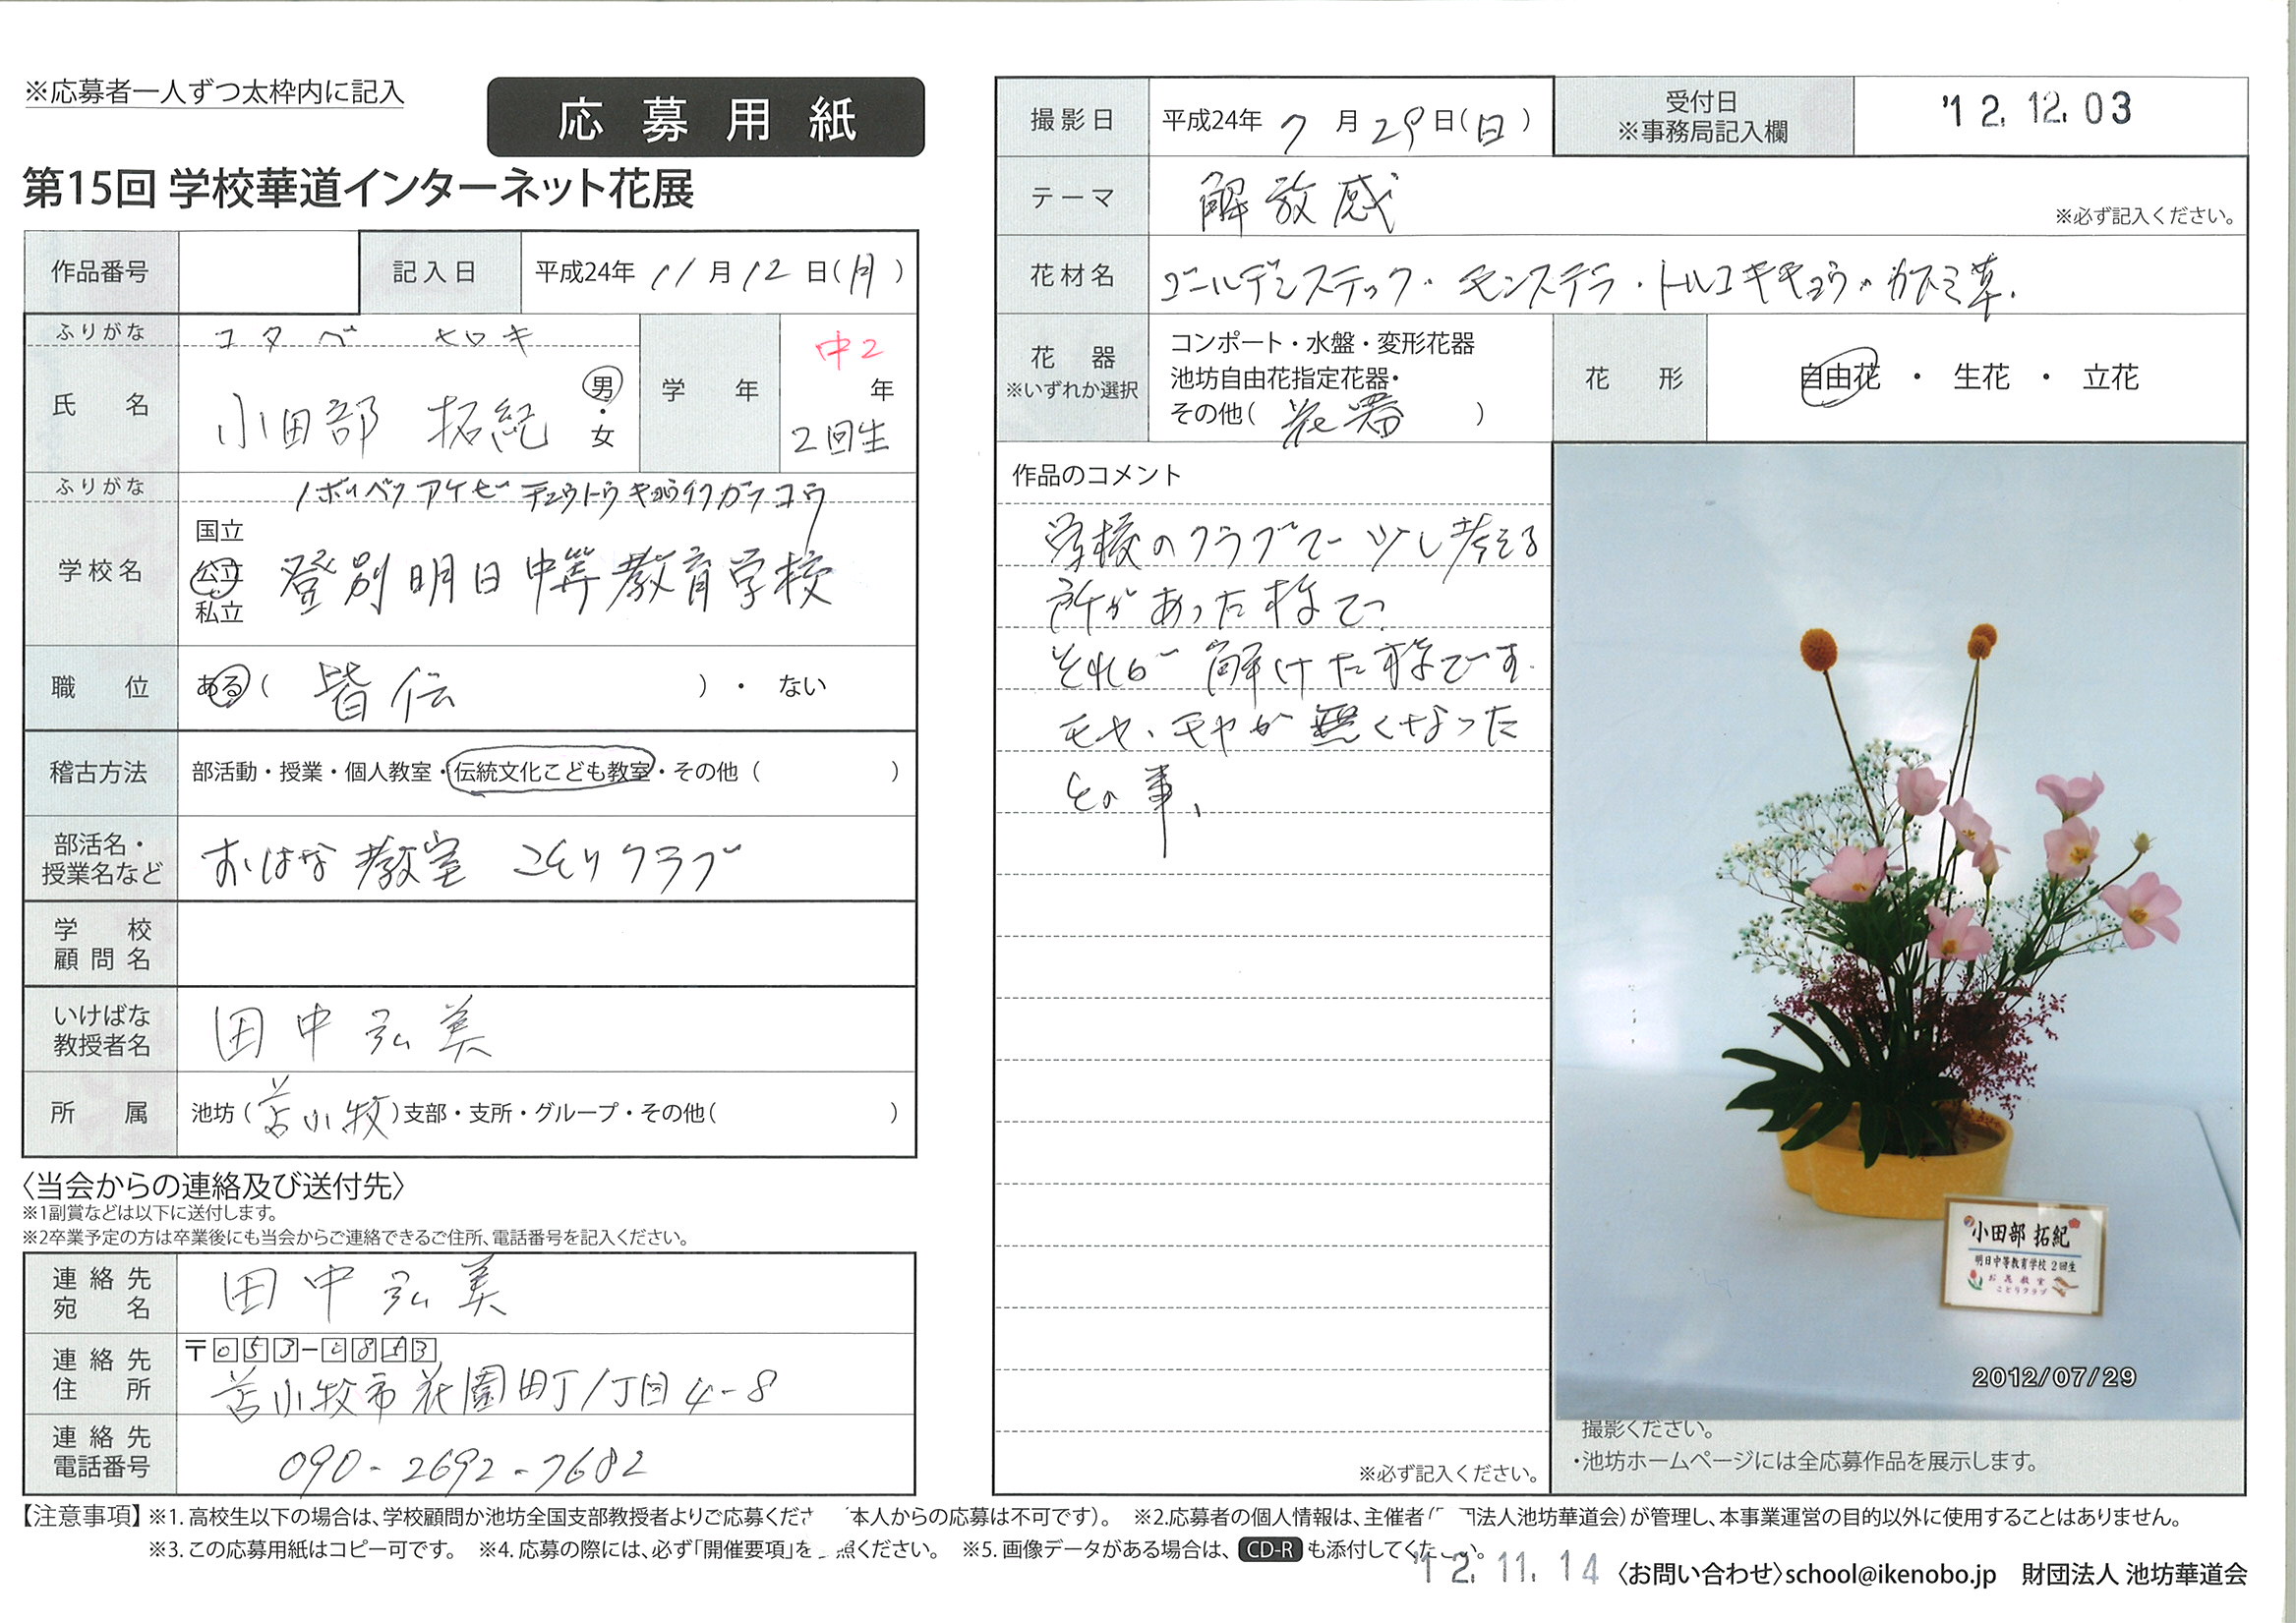 ※応募者一人ずつ太枠内に記入
応募用紙
第15回 学校華道インターネット花展
作品番号
記入日 平成24年 11月12日(月)
ふりがな コタベ ヒロキ
氏名 小田部 拓紀 男・女
学年 中2 年 2回生
ふりがな ノボリベツアケビチュウトウキョウイクガッコウ
学校名 国立 公立 私立 登別明日中等教育学校
職位 ある( 皆伝 )・ ない
稽古方法 部活動・授業・個人教室・伝統文化こども教室・その他( )
部活名・授業名など おはな教室 ことりクラブ
学校顧問名
いけばな教授者名 田中弘美
所属 池坊(苫小牧)支部・支所・グループ・その他( )
〈当会からの連絡及び送付先〉
※1副賞などは以下に送付します。
※2卒業予定の方は卒業後にも当会からご連絡できるご住所、電話番号を記入ください。
連絡先宛名 田中弘美
連絡先住所 〒053-0853
苫小牧市花園町1丁目4-8
連絡先電話番号 090-2692-7682
撮影日 平成24年 7月29日(日)
受付日 ※事務局記入欄 '12.12.03
テーマ 解放感 ※必ず記入ください。
花材名 ゴールデンスティック・モンステラ・トルコキキョウ・カスミ草.
花器 ※いずれか選択
コンポート・水盤・変形花器
池坊自由花指定花器・
その他( 花器 )
花形 自由花 ・ 生花 ・ 立花
作品のコメント
学校のクラブで少し考える
所があった様で
それが解けた様です.
モヤ、モヤが無くなった
その事、
※必ず記入ください。
小田部 拓紀
明日中等教育学校 2回生
お花教室
ことりクラブ
2012/07/29
撮影ください。
・池坊ホームページには全応募作品を展示します。
【注意事項】※1. 高校生以下の場合は、学校顧問か池坊全国支部教授者よりご応募くださ 本人からの応募は不可です)。 ※2.応募者の個人情報は、主催者( 法人池坊華道会)が管理し、本事業運営の目的以外に使用することはありません。
※3. この応募用紙はコピー可です。 ※4. 応募の際には、必ず「開催要項」を 照ください。 ※5. 画像データがある場合は、CD-Rも添付してくた い。
'12.11.14
〈お問い合わせ〉school@ikenobo.jp 財団法人 池坊華道会